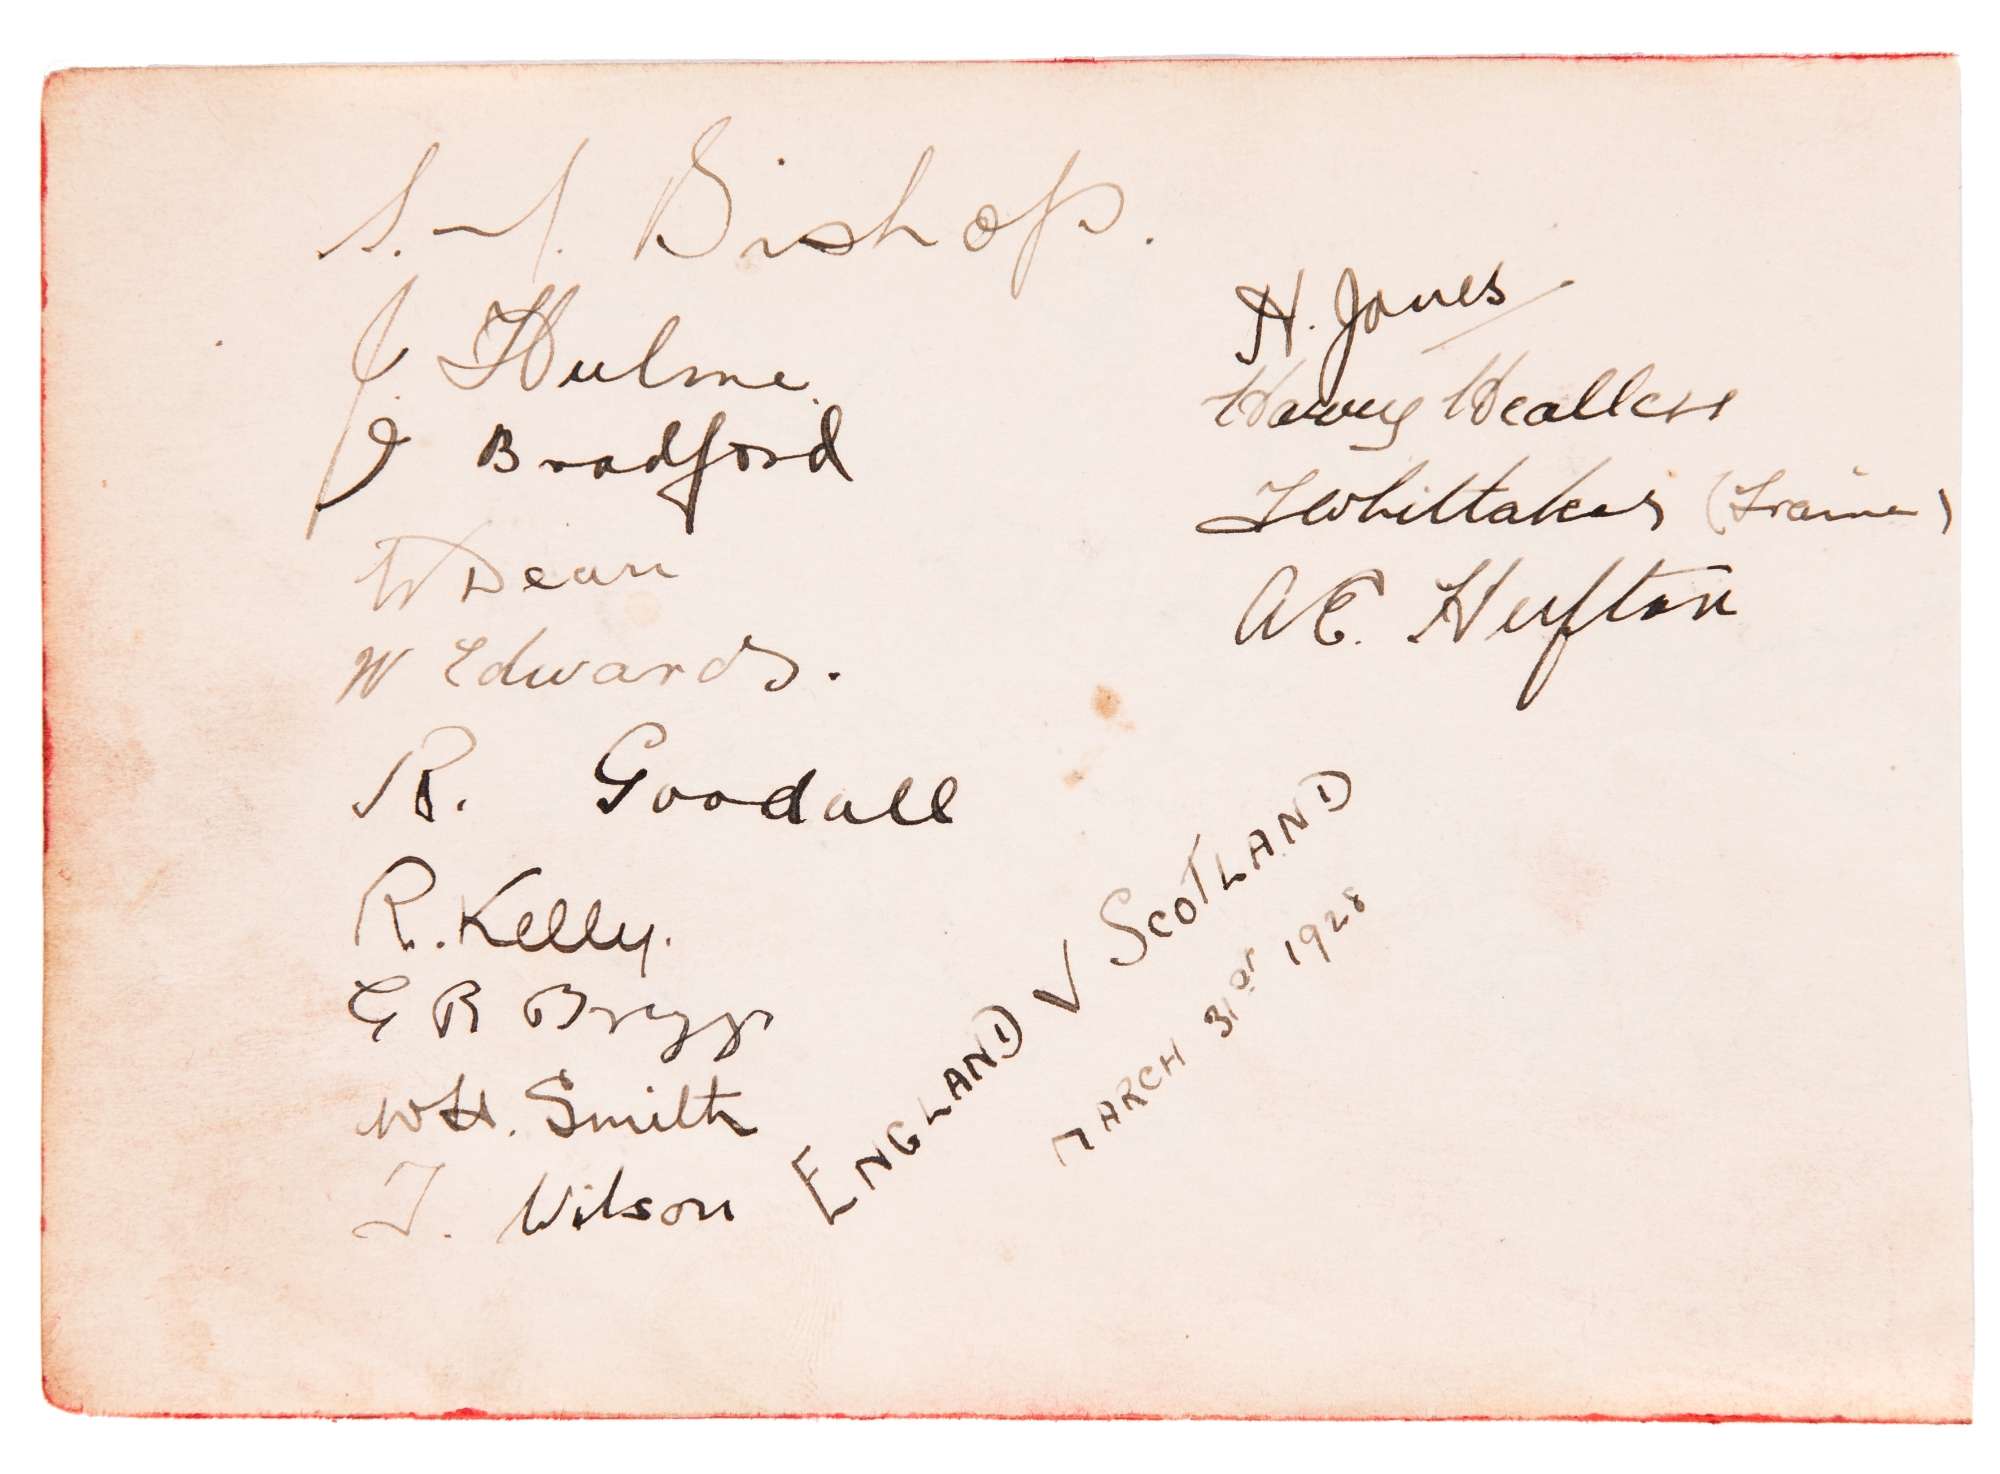 S. J. Bishop.
J. Hulme.
J Bradford
W Dean
W Edwards.
R. Goodall
R. Kelly.
G R Briggs
W H. Smith
T. Wilson
H. Jones
Harry Healless
T Whittaker (Trainer)
A E. Hufton
ENGLAND V SCOTLAND
MARCH 31ST 1928